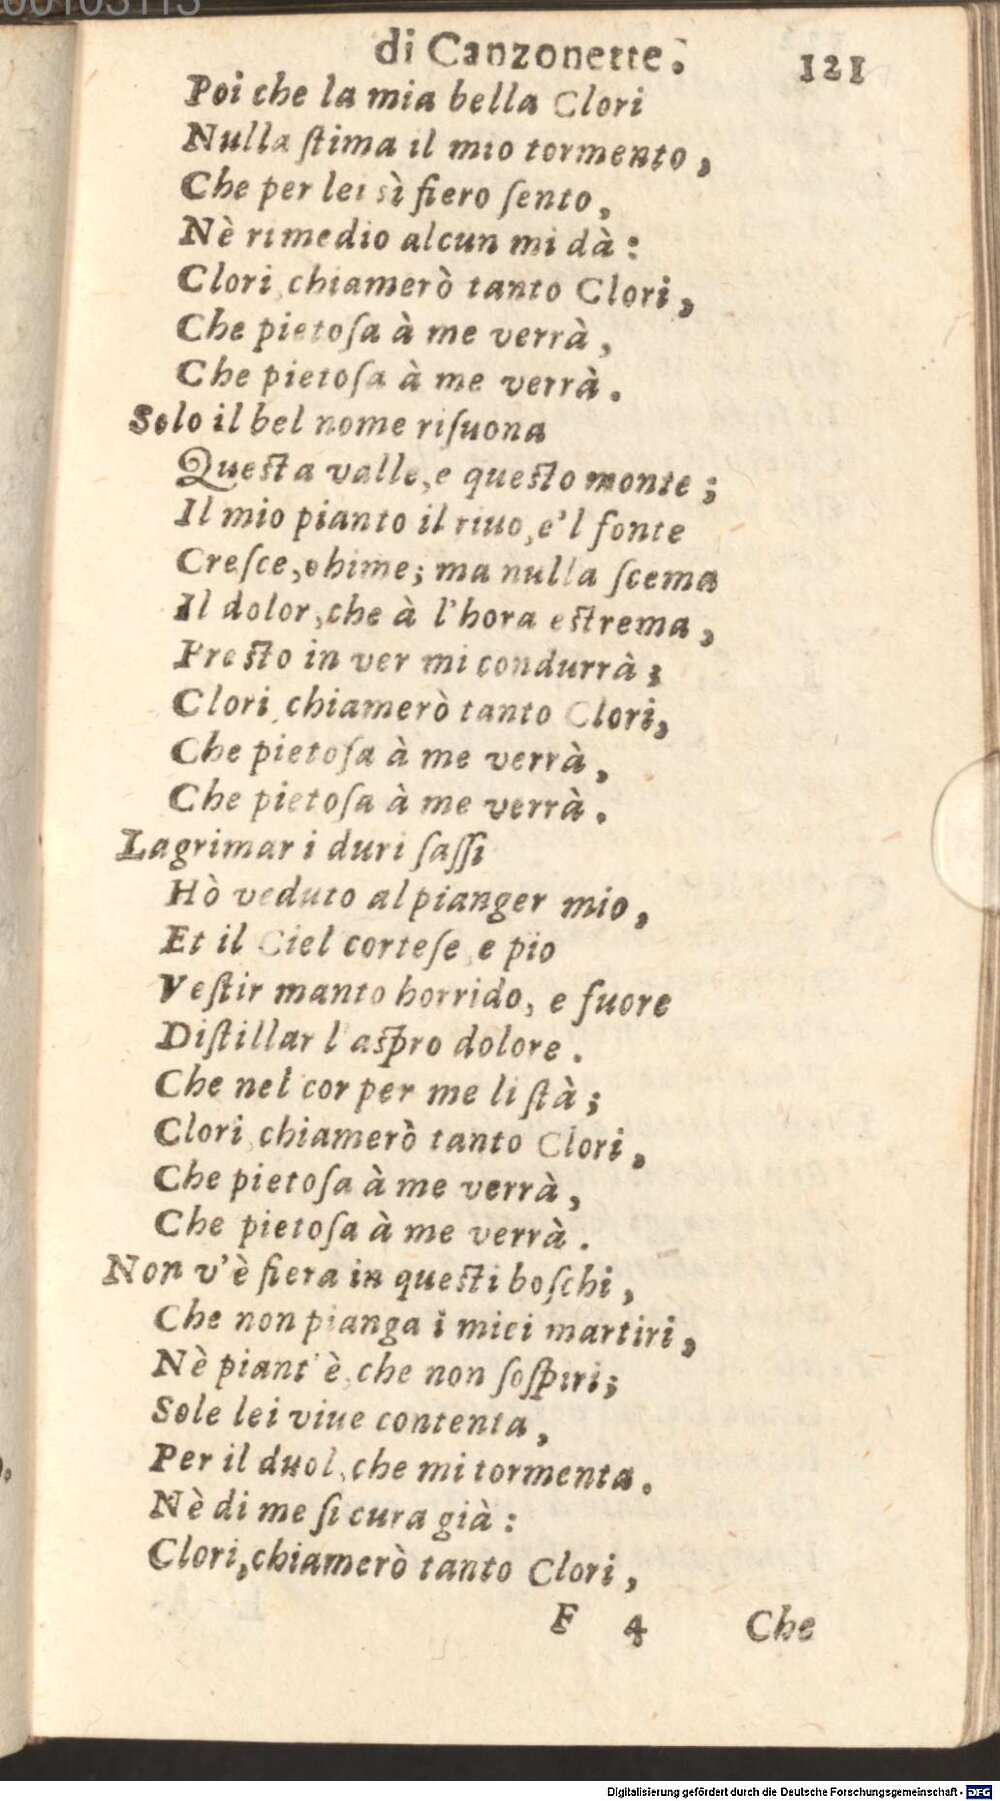 00103113
di Canzonette. 121
Poi che la mia bella Clori
Nulla ſtima il mio tormento,
Che per lei sì fiero ſento,
Nè rimedio alcun mi dà:
Clori, chiamerò tanto Clori,
Che pietoſa à me verrà,
Che pietoſa à me verrà.
Solo il bel nome riſuona
Queſta valle, e queſto monte;
Il mio pianto il riuo, e'l fonte
Creſce, ohime; ma nulla ſcema
Il dolor, che à l'hora eſtrema,
Preſto in ver mi condurrà;
Clori, chiamerò tanto Clori,
Che pietoſa à me verrà,
Che pietoſa à me verrà.
Lagrimar i duri ſaſſi
Hò veduto al pianger mio,
Et il Ciel corteſe, e pio
Veſtir manto horrido, e fuore
Diſtillar l'aſpro dolore.
Che nel cor per me li ſtà;
Clori, chiamerò tanto Clori,
Che pietoſa à me verrà,
Che pietoſa à me verrà.
Non v'è fiera in queſti boſchi,
Che non pianga i miei martiri,
Nè piant'è, che non ſoſpiri;
Sole lei viue contenta,
Per il duol, che mi tormenta.
Nè di me ſi cura già:
Clori, chiamerò tanto Clori,
F 4 Che
Digitalisierung gefördert durch die Deutsche Forschungsgemeinschaft - DFG